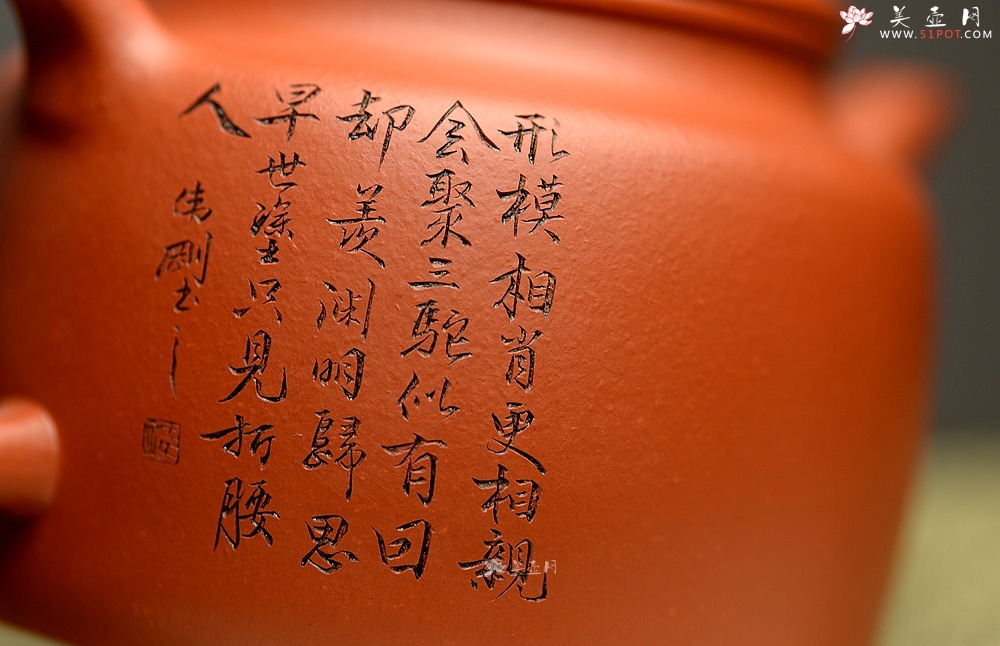 形模相肖更相親
会聚三駝似有囙
却羡渊明歸思
早世塗只見折腰
人
伟剛书
美壶网
WWW.51POT.COM
美壶网